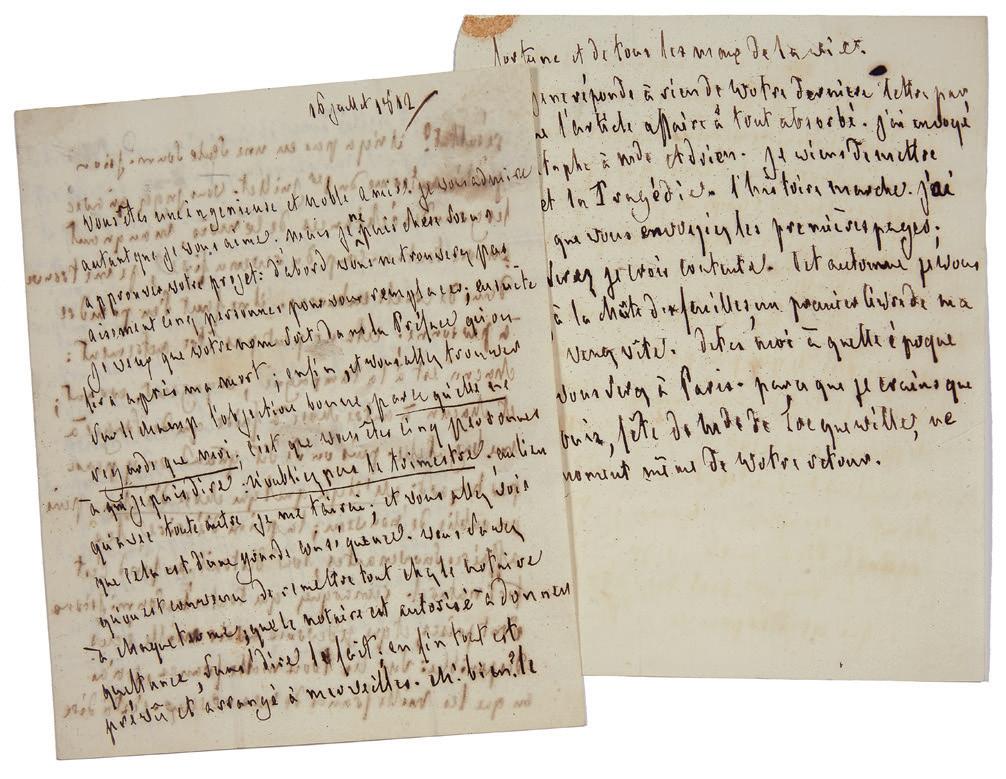 16 juillet 1812
vous êtes une ingenieuse et noble amie. je vous admire
autant que je vous aime. mais je ne puis chere soeur
approuver votre projet: d'abord vous ne trouverez pas
aisement cinq personnes pour vous remplacer; ensuite
je veux que votre nom soit dans la Préface qu'on
lira après ma mort; enfin, et vous allez trouver
sur le champ l'objection bonne, parce qu'elle ne
regarde que moi, c'est que vous êtes cinq personnes
à qui je puis dire: n'oubliez pas le trimestre. au lieu
qu'avec toute autre je me tairai; et vous allez voir
que cela est d'une grande conséquence. vous savez
qu'on est convenu de remettre tout chez le notaire
à chaque terme, que le notaire est autorisé à donner
quittance, sans dire le fait. enfin tout est
prévu et arrangé à merveilles. eh! bien, le
fortune et de tous les maux de la vie.
je ne réponds à rien de votre dernière lettre par
l'article affaire à tout absorbé. j'ai envoyé
à mde Adrien. je viens de mettre
et la Tragédie. l'histoire marche. j'ai
que vous envoyiez les premières pages.
serez je crois contente. Cet automne je vous
à la chûte des feuilles, un premier livre de ma
venez vite. Dites moi à quelle époque
vous serez à Paris. parce que je crains que
fête de mde de Tocqueville, ne
moment même de votre retour.